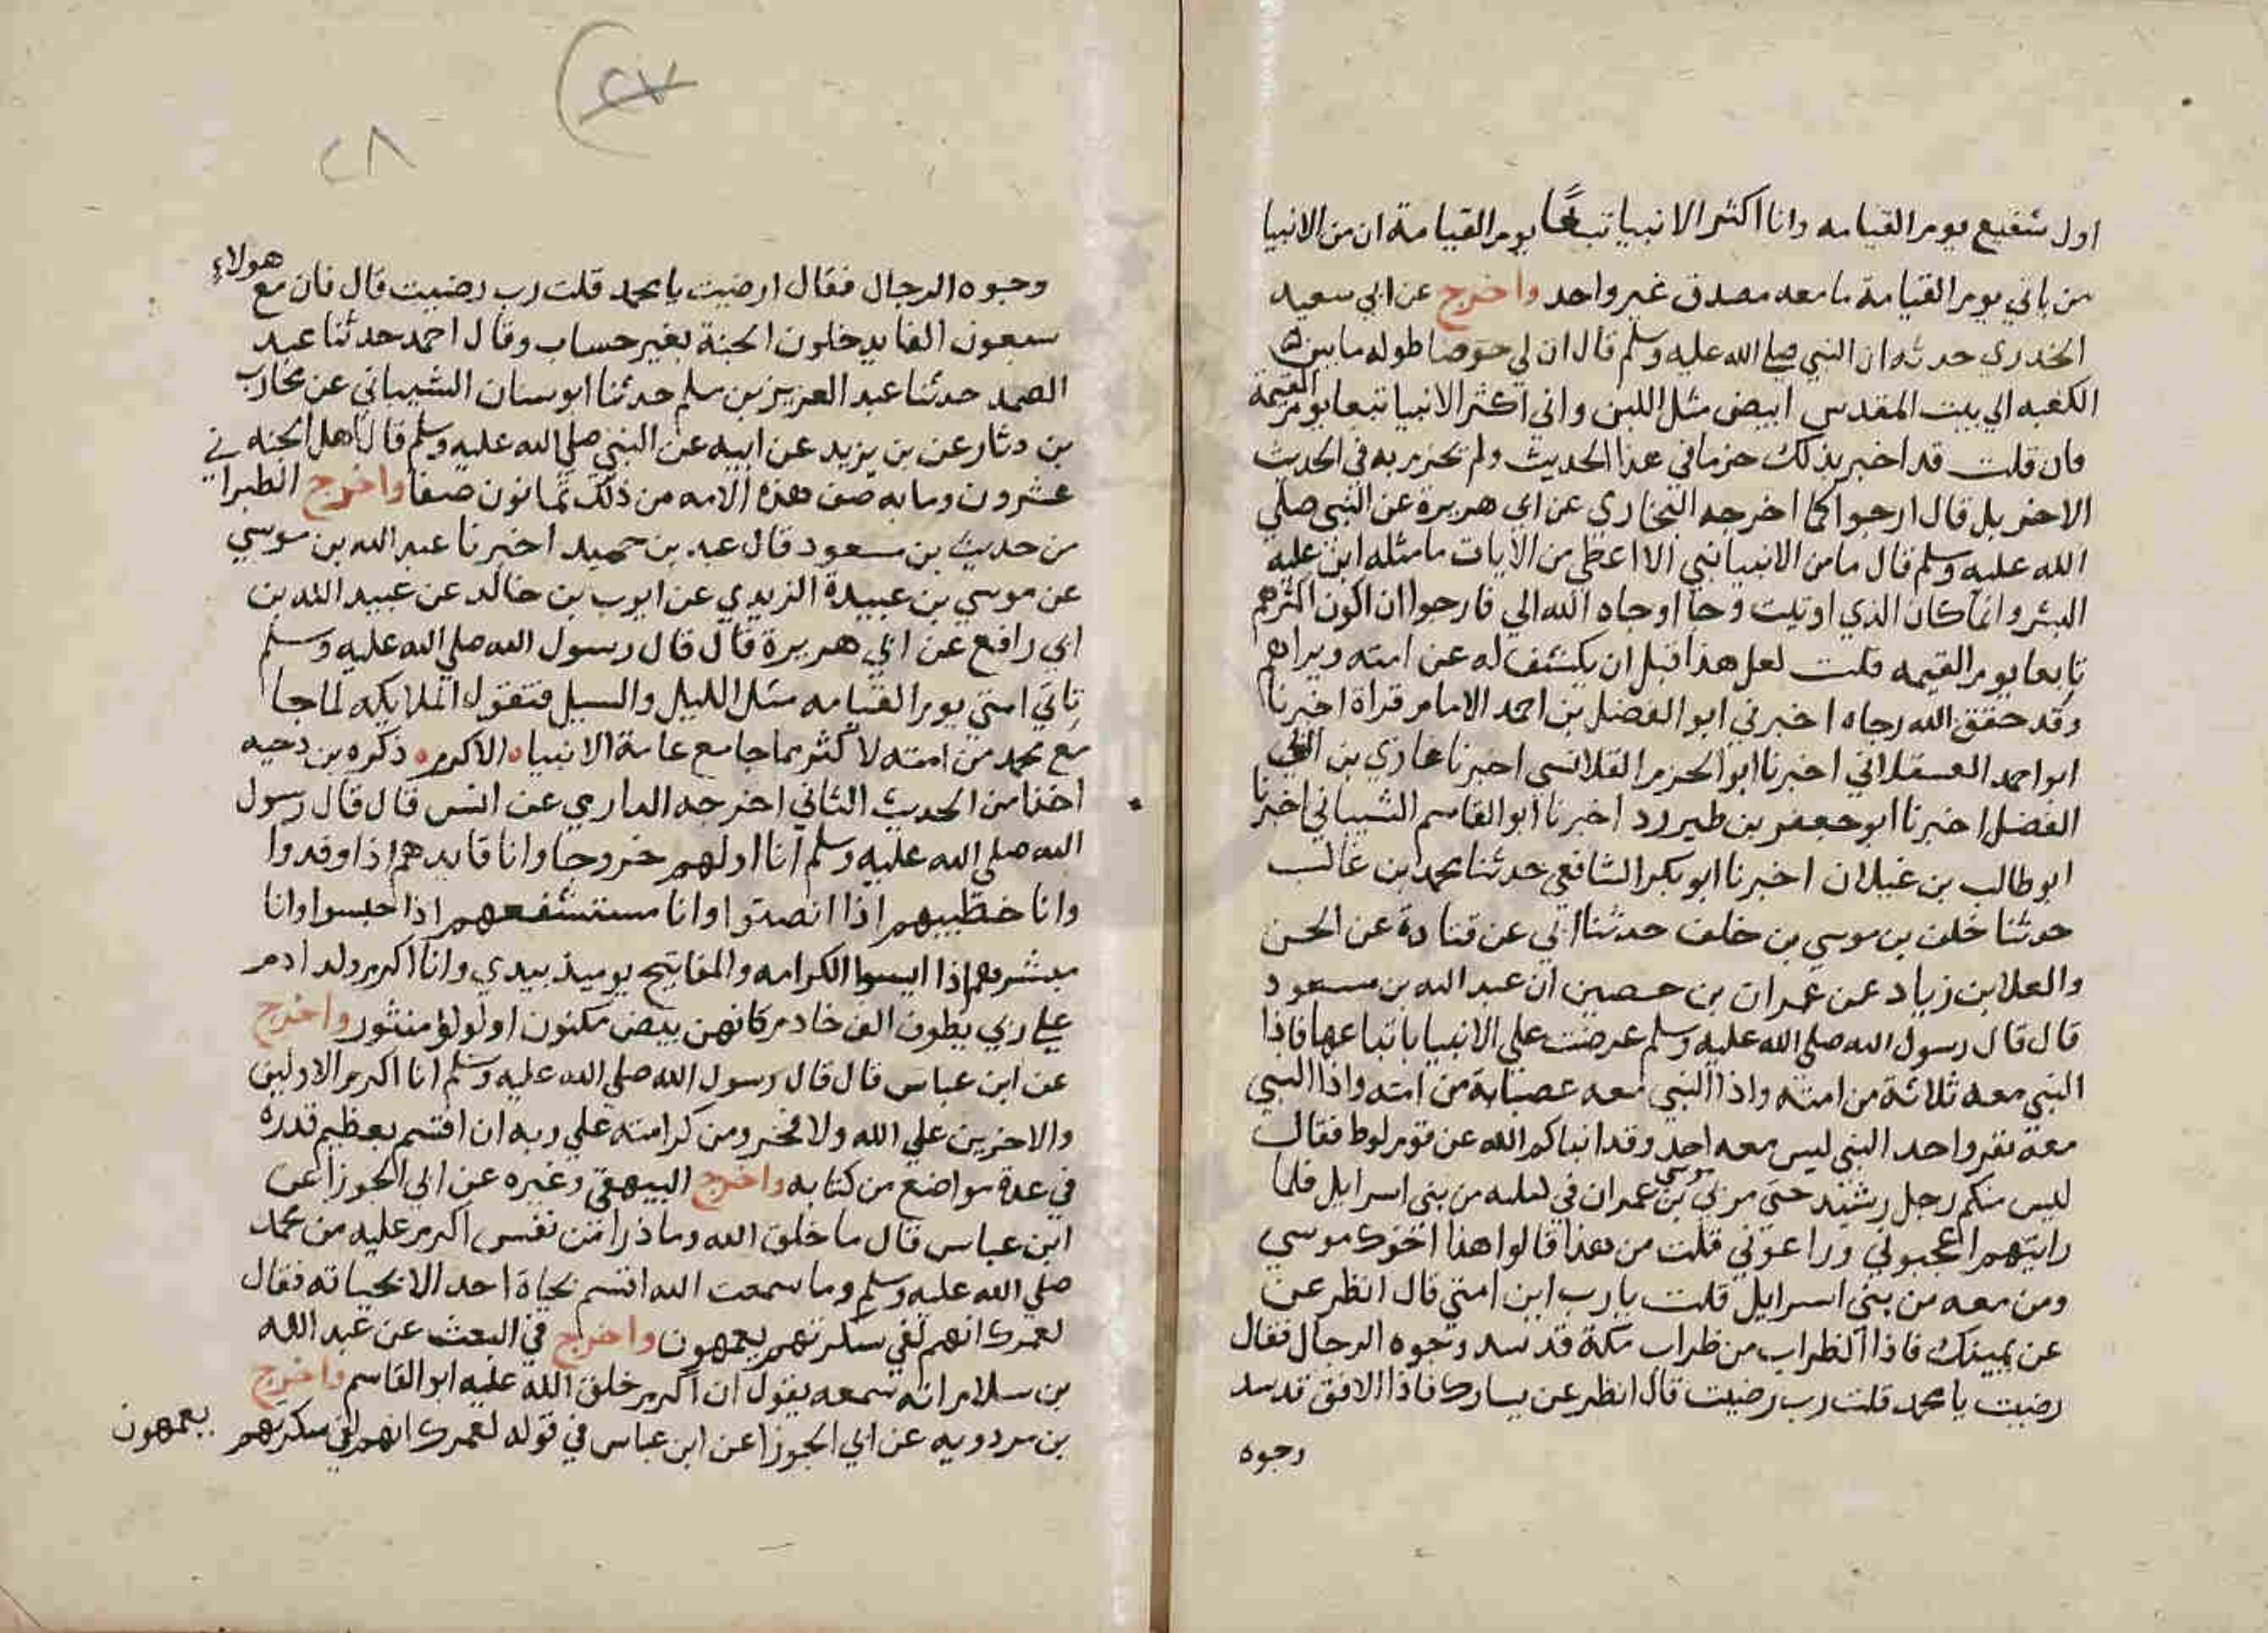 اول شفيع يوم القيامه وانا اكثر الانبيا تبعًا يوم القيامة ان من الانبيا
من ياتي يوم القيامة ما معه مصدق غير واحد واخرج عن ابي سعيد
الخدري حدثه ان النبي صلي الله عليه وسلم قال ان لي حوضا طوله ما بين
الكعبه الي بيت المقدس ابيض مثل اللبن واني اكثر الانبيا تبعا يوم القيمة
فان قلت قد اخبر بذلك جزما في هذا الحديث ولم يجزم به في الحديث
الاخر بل قال ارجوا كما اخرجه البخاري عن ابي هريرة عن النبي صلي
الله عليه وسلم قال ما من الانبيا نبي الا اعطي من الآيات ما مثله امن عليه
البشر وانما كان الذي اوتيت وحيا اوحاه الله الي فارجوا ان اكون اكثرهم
تابعا يوم القيمه قلت لعل هذا قبل ان يكشف له عن امته ويراهم
وقد حقق الله رجاه اخبرني ابو الفضل بن احمد الامام قراة اخبرنا
ابو احمد العسقلاني اخبرنا ابو الحزم القلانسي اخبرنا غازي بن ابي
الفضل اخبرنا ابو جعفر بن طبرزد اخبرنا ابو القاسم الشيباني اخبرنا
ابو طالب بن غيلان اخبرنا ابو بكر الشافعي حدثنا محمد بن غالب
حدثنا خلف بن موسي بن خلف حدثنا ابي عن قتادة عن الحسن
والعلا بن زياد عن عمران بن حصين ان عبد الله بن مسعود
قال قال رسول الله صلي الله عليه وسلم عرضت علي الانبيا باتباعها فاذا
النبي معه ثلاثة من امته واذا النبي معه عصابة من امته واذا النبي
معه نفر واحد النبي ليس معه احد وقد انباكم الله عن قوم لوط فقال
ليس منكم رجل رشيد حتي مر بي موسي بن عمران في من بني اسرايل فلما
رايتهم اعجبوني وراعوني قلت من هذا قالوا هذا اخوك موسي
ومن معه من بني اسرايل قلت يا رب اين امتي قال انظر عن
عن يمينك فاذا الظراب من ظراب مكة قد سد وجوه الرجال فقال
رضيت يا محمد قلت رب رضيت قال انظر عن يسارك فاذا الافق قد سد
وجوه
٢٧
٢٨
وجوه الرجال فقال ارضيت يا محمد قلت رب رضيت قال فان مع هولاء
سبعون الفا يدخلون الجنة بغير حساب وقال احمد حدثنا عبد
الصمد حدثنا عبد العزيز بن مسلم حدثنا ابو سنان الشيباني عن محارب
بن دثار عن بن يزيد عن ابيه عن النبي صلي الله عليه وسلم قال اهل الجنه في
عشرون ومايه صف هذه الامه من ذلك ثمانون صفا واخرج الطبرا
من حديث بن مسعود قال عبد بن حميد اخبرنا عبد الله بن موسي
عن موسي بن عبيدة الزيدي عن ايوب بن خالد عن عبيد الله بن
ابي رافع عن ابي هريرة قال قال رسول الله صلي الله عليه وسلم
تاتي امتي يوم القيامه مثل الليل والسيل فتقول الملايكه لما جا
مع محمد من امته لاكثر مما جا مع عامة الانبياء الاكرم ذكره بن دحيه
اخذا من الحديث الثاني اخرجه الدارمي عن انس قال قال رسول
الله صلي الله عليه وسلم انا اولهم خروجا وانا قايدهم اذا وفدوا
وانا خطيبهم اذا انصتوا وانا مستشفعهم اذا حبسوا وانا
مبشرهم اذا ايسوا الكرامه والمفاتيح يوميذ بيدي وانا اكرم ولد ادم
علي ربي يطوف الف خادم كانهن بيض مكنون او لولؤ منثور واخرج
عن ابن عباس قال قال رسول الله صلي الله عليه وسلم انا اكرم الاولين
والاخرين علي الله ولا فخر ومن كرامته علي ربه ان اقسم بعظيم قدره
في عدة مواضع من كتابه واخرج البيهقي وغيره عن ابي الجوزا عن
ابن عباس قال ما خلق الله وما ذرا من نفس اكرم عليه من محمد
صلي الله عليه وسلم وما سمعت الله اقسم بحياة احد الا بحياته فقال
لعمرك انهم لفي سكرتهم يعمهون واخرج في البعث عن عبد الله
بن سلام انه سمعه يقول ان اكرم خلق الله عليه ابو القاسم واخرج
بن مردويه عن ابي الجوزا عن ابن عباس في قوله لعمرك انهم لفي سكرتهم يعمهون